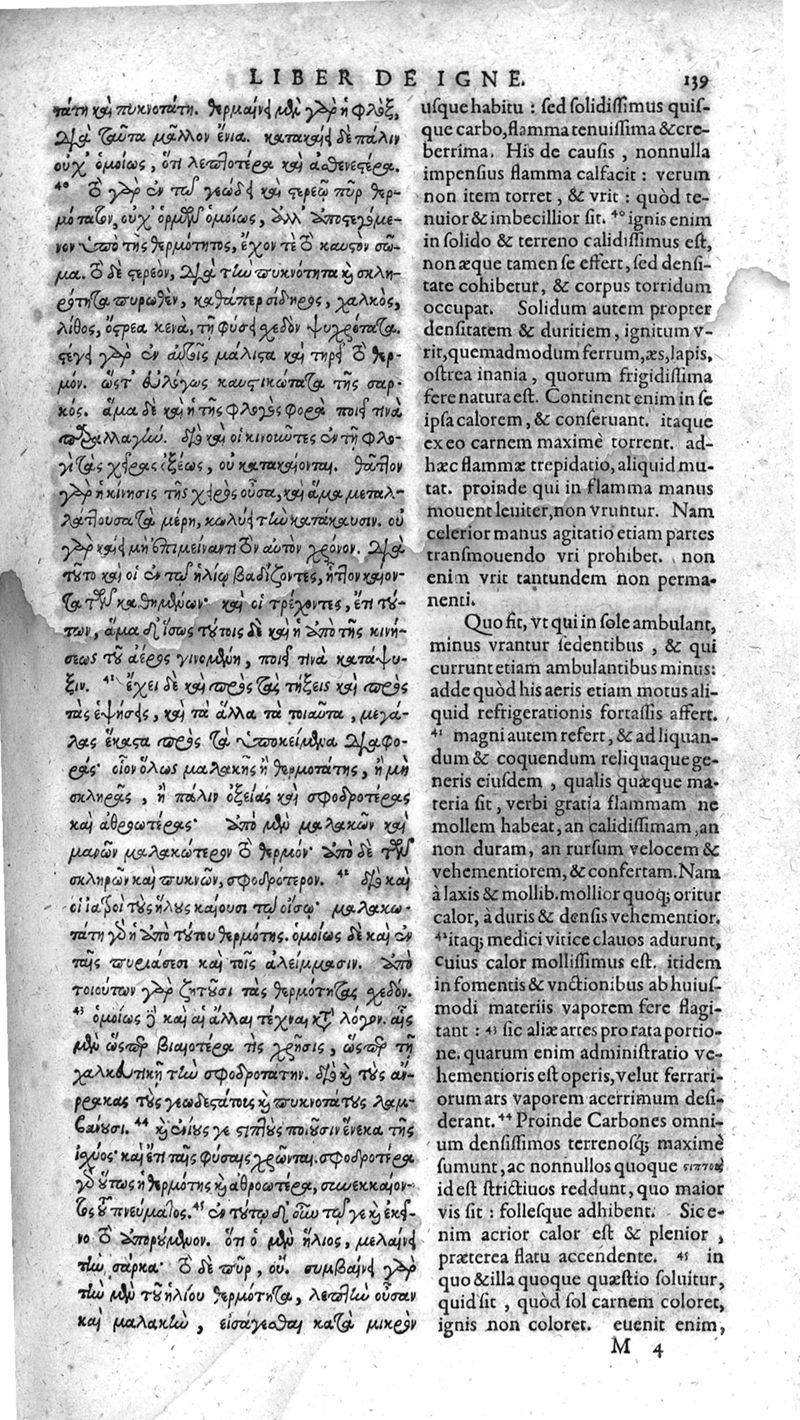 LIBER DE IGNE. 139
τάτη καὶ πυκνοτάτη. θερμαίνει μὲν γὰρ ἡ φλὸξ,
διὰ ταῦτα μᾶλλον ἔνια. κατακαίει δὲ πάλιν
οὐχ' ὁμοίως, ὅτι λεπτοτέρα καὶ ἀσθενεστέρα.
40 τὸ γὰρ ἐν τῷ γεώδει καὶ στερεῷ πῦρ θερ-
μότατον, οὐχ' ὁρμᾷ ὁμοίως, ἀλλ' ἀποστεγόμε-
νον ὑπὸ τῆς θερμότητος, ἔχον τε τὸ καυστὸν σῶ-
μα. τὸ δὲ στερεὸν, διὰ τὴν πυκνότητα κ̀ σκλη-
ρότητα πυρωθὲν, καθάπερ σίδηρος, χαλκὸς,
λίθος, ὄστρεα κενὰ, τῇ φύσει σχεδὸν ψυχρότατα.
στέγει γὰρ ἐν αὑτοῖς μάλιστα καὶ τηρεῖ τὸ θερ-
μόν. ὥστ' εὐλόγως καυστικώτατα τῆς σαρ-
κός. ἅμα δὲ καὶ ἡ τῆς φλογὸς φορὰ ποιεῖ τινὰ
παραλλαγήν. διὸ καὶ οἱ κινοῦντες ἐν τῇ φλο-
γὶ τὰς χεῖρας ὀξέως, οὐ κατακαίονται. θᾶττον
γὰρ ἡ κίνησις τῆς χειρὸς οὖσα, καὶ ἅμα μεταλ-
λάττουσα τὰ μέρη, κωλύει τὴν κατάκαυσιν. οὐ
γὰρ καίει μὴ ἐπιμείναντι τὸν αὐτὸν χρόνον. διὰ
τοῦτο καὶ οἱ ἐν τῷ ἡλίῳ βαδίζοντες, ἧττον καίον-
ται τῶν καθημένων· καὶ οἱ τρέχοντες, ἔτι τού-
των, ἅμα δ' ἴσως τούτοις δὲ καὶ ἡ ἀπὸ τῆς κινή-
σεως τοῦ ἀέρος γινομένη, ποιεῖ τινὰ κατάψυ-
ξιν. 41 ἔχει δὲ καὶ πρὸς τὰς τήξεις καὶ πρὸς
τὰς ἑψήσεις, καὶ τὰ ἄλλα τὰ τοιαῦτα, μεγά-
λας ἕκαστα πρὸς τὰ ὑποκείμενα διαφο-
ράς· οἷον ὅλως μαλακῆς ἢ θερμοτάτης, ἢ μὴ
σκληρᾶς, ἢ πάλιν ὀξείας καὶ σφοδροτέρας
καὶ ἀθροωτέρας· ἀπὸ μὲν μαλακῶν καὶ
μανῶν μαλακώτερον τὸ θερμόν· ἀπὸ δὲ τῶν
σκληρῶν καὶ πυκνῶν, σφοδρότερον. 42 διὸ καὶ
οἱ ἰατροὶ τοὺς ἥλους καίουσι τῷ οἴσῳ· μαλακω-
τάτη γὰρ ἡ ἀπὸ τούτου θερμότης. ὁμοίως δὲ καὶ ἐν
ταῖς πυριάσεσι καὶ τοῖς ἀλείμμασιν. ἀπὸ
τοιούτων γὰρ ζητοῦσι τὰς θερμότητας σχεδόν.
43 ὁμοίως δὲ καὶ αἱ ἄλλαι τέχναι κατὰ λόγον. αἷς
μὲν ὥσπερ βιαιοτέρα τις χρῆσις, ὥσπερ τῇ
χαλκευτικῇ τὴν σφοδροτάτην. διὸ κ̀ τοὺς ἄν-
θρακας τοὺς γεωδεστάτους κ̀ πυκνοτάτους λαμ-
βάνουσι. 44 κ̀ ἐνίους γε στιπτοὺς ποιοῦσιν ἕνεκα τῆς
ἰσχύος· καὶ ἔτι ταῖς φύσαις χρῶνται. σφοδροτέρα
γὰρ οὕτως ἡ θερμότης κ̀ ἀθροωτέρα, συνεκκαίον-
τος τοῦ πνεύματος. 45 ἐν τούτῳ δ' οὖν τῷ γε κ̀ ἐκεῖ-
νο τὸ ἀπορούμενον. ὅτι ὁ μὲν ἥλιος, μελαίνει
τὴν σάρκα· τὸ δὲ πῦρ, οὔ. συμβαίνει γὰρ
τὴν μὲν τοῦ ἡλίου θερμότητα, λεπτὴν οὖσαν
καὶ μαλακὴν, εἰσάγεσθαι κατὰ μικρὸν
usque habitu : sed solidissimus quis-
que carbo, flamma tenuissima & cre-
berrima. His de causis , nonnulla
impensius flamma calfacit : verum
non item torret , & vrit : quòd te-
nuior & imbecillior sit. 40 ignis enim
in solido & terreno calidissimus est,
non æque tamen se effert, sed densi-
tate cohibetur, & corpus torridum
occupat. Solidum autem propter
densitatem & duritiem, ignitum v-
rit, quemadmodum ferrum, æs, lapis,
ostrea inania , quorum frigidissima
fere natura est. Continent enim in se
ipsa calorem, & conseruant. itaque
ex eo carnem maximè torrent. ad-
hæc flammæ trepidatio, aliquid mu-
tat. proinde qui in flamma manus
mouent leuiter, non vruntur. Nam
celerior manus agitatio etiam partes
transmouendo vri prohibet. non
enim vrit tantundem non perma-
nenti.
Quo fit, vt qui in sole ambulant,
minus vrantur sedentibus , & qui
currunt etiam ambulantibus minus:
adde quòd his aeris etiam motus ali-
quid refrigerationis fortassis affert.
41 magni autem refert, & ad liquan-
dum & coquendum reliquaque ge-
neris eiusdem , qualis quæque ma-
teria sit , verbi gratia flammam ne
mollem habeat, an calidissimam, an
non duram, an rursum velocem &
vehementiorem, & confertam. Nam
à laxis & mollib. mollior quoq; oritur
calor, à duris & densis vehementior.
42 itaq; medici vitice clauos adurunt,
cuius calor mollissimus est. itidem
in fomentis & vnctionibus ab huius-
modi materiis vaporem fere flagi-
tant : 43 sic aliæ artes pro rata portio-
ne. quarum enim administratio ve-
hementioris est operis, velut ferrari-
orum ars vaporem acerrimum desi-
derant. 44 Proinde Carbones omni-
um densissimos terrenosq; maximè
sumunt, ac nonnullos quoque στιπτοὺς
id est strictiuos reddunt, quo maior
vis sit : follesque adhibent. Sic e-
nim acrior calor est & plenior ,
præterea flatu accendente. 45 in
quo & illa quoque quæstio soluitur,
quid sit , quòd sol carnem coloret,
ignis non coloret. euenit enim,
M 4